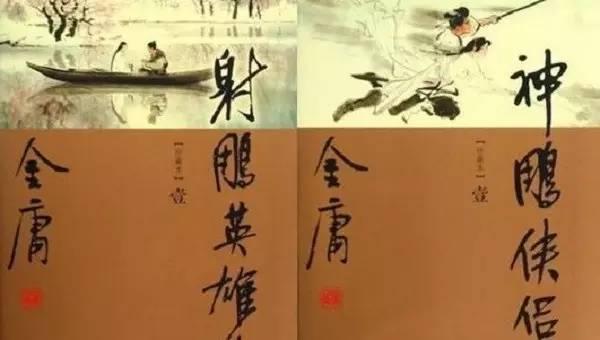 射鵰英雄
【珍藏本】
壹
金庸
神鵰俠侶
【珍藏本】
壹
金庸